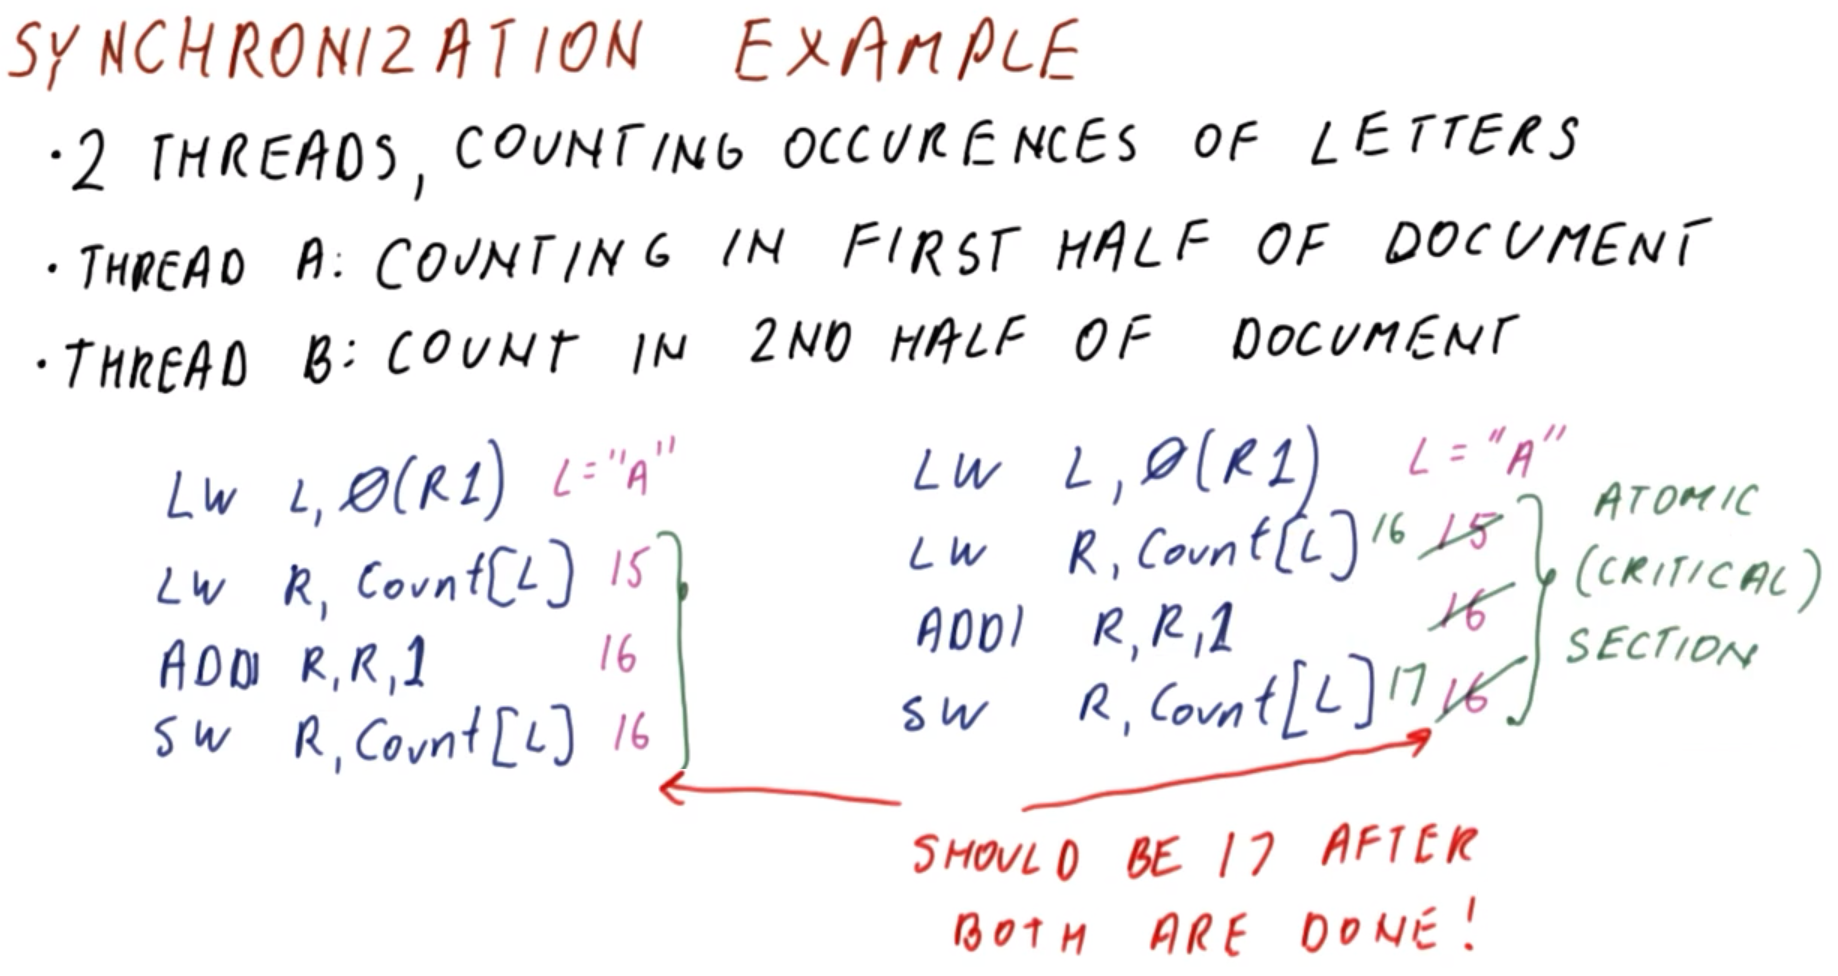 SYNCHRONIZATION EXAMPLE
· 2 THREADS, COUNTING OCCURENCES OF LETTERS
· THREAD A: COUNTING IN FIRST HALF OF DOCUMENT
· THREAD B: COUNT IN 2ND HALF OF DOCUMENT
LW L, Ø(R1) L="A"
LW R, Count[L] 15
ADDI R,R,1 16
SW R, Count[L] 16
LW L, Ø(R1) L="A"
LW R, Count[L] 16 15
ADDI R,R,1 16
SW R, Count[L] 17 16
ATOMIC
(CRITICAL)
SECTION
SHOULD BE 17 AFTER
BOTH ARE DONE!